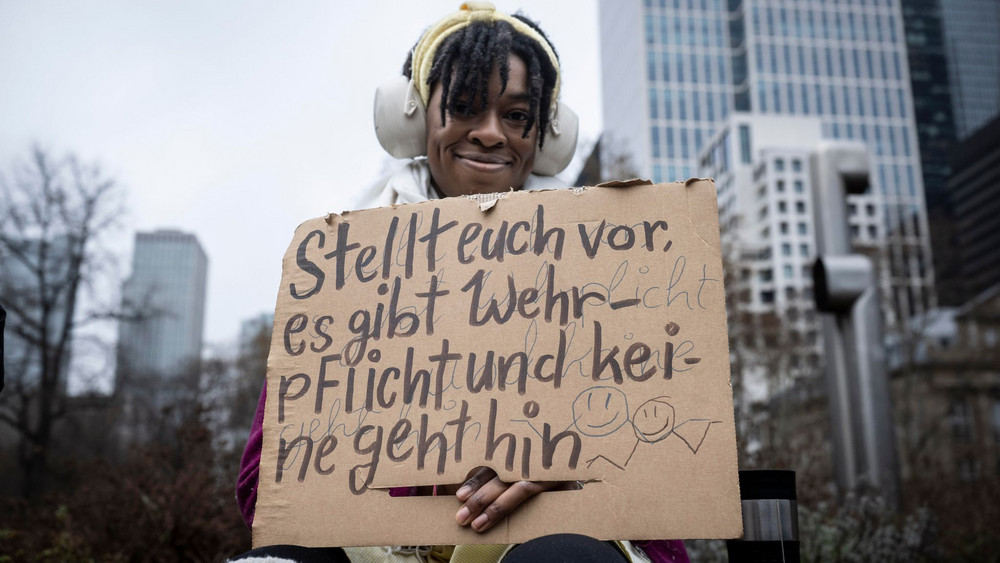 Stellt euch vor,
es gibt Wehr-
pflicht und kei-
ne geht hin